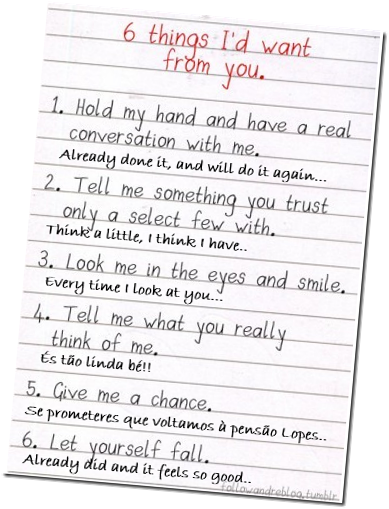 6 things I'd want
from you.
1. Hold my hand and have a real
conversation with me.
Already done it, and will do it again...
2. Tell me something you trust
only a select few with.
Think a little, I think I have..
3. Look me in the eyes and smile.
Every time I look at you...
4. Tell me what you really
think of me.
És tão linda bé!!
5. Give me a chance.
Se prometeres que voltamos à pensão Lopes..
6. Let yourself fall.
Already did and it feels so good..
followandreblog.tumblr.